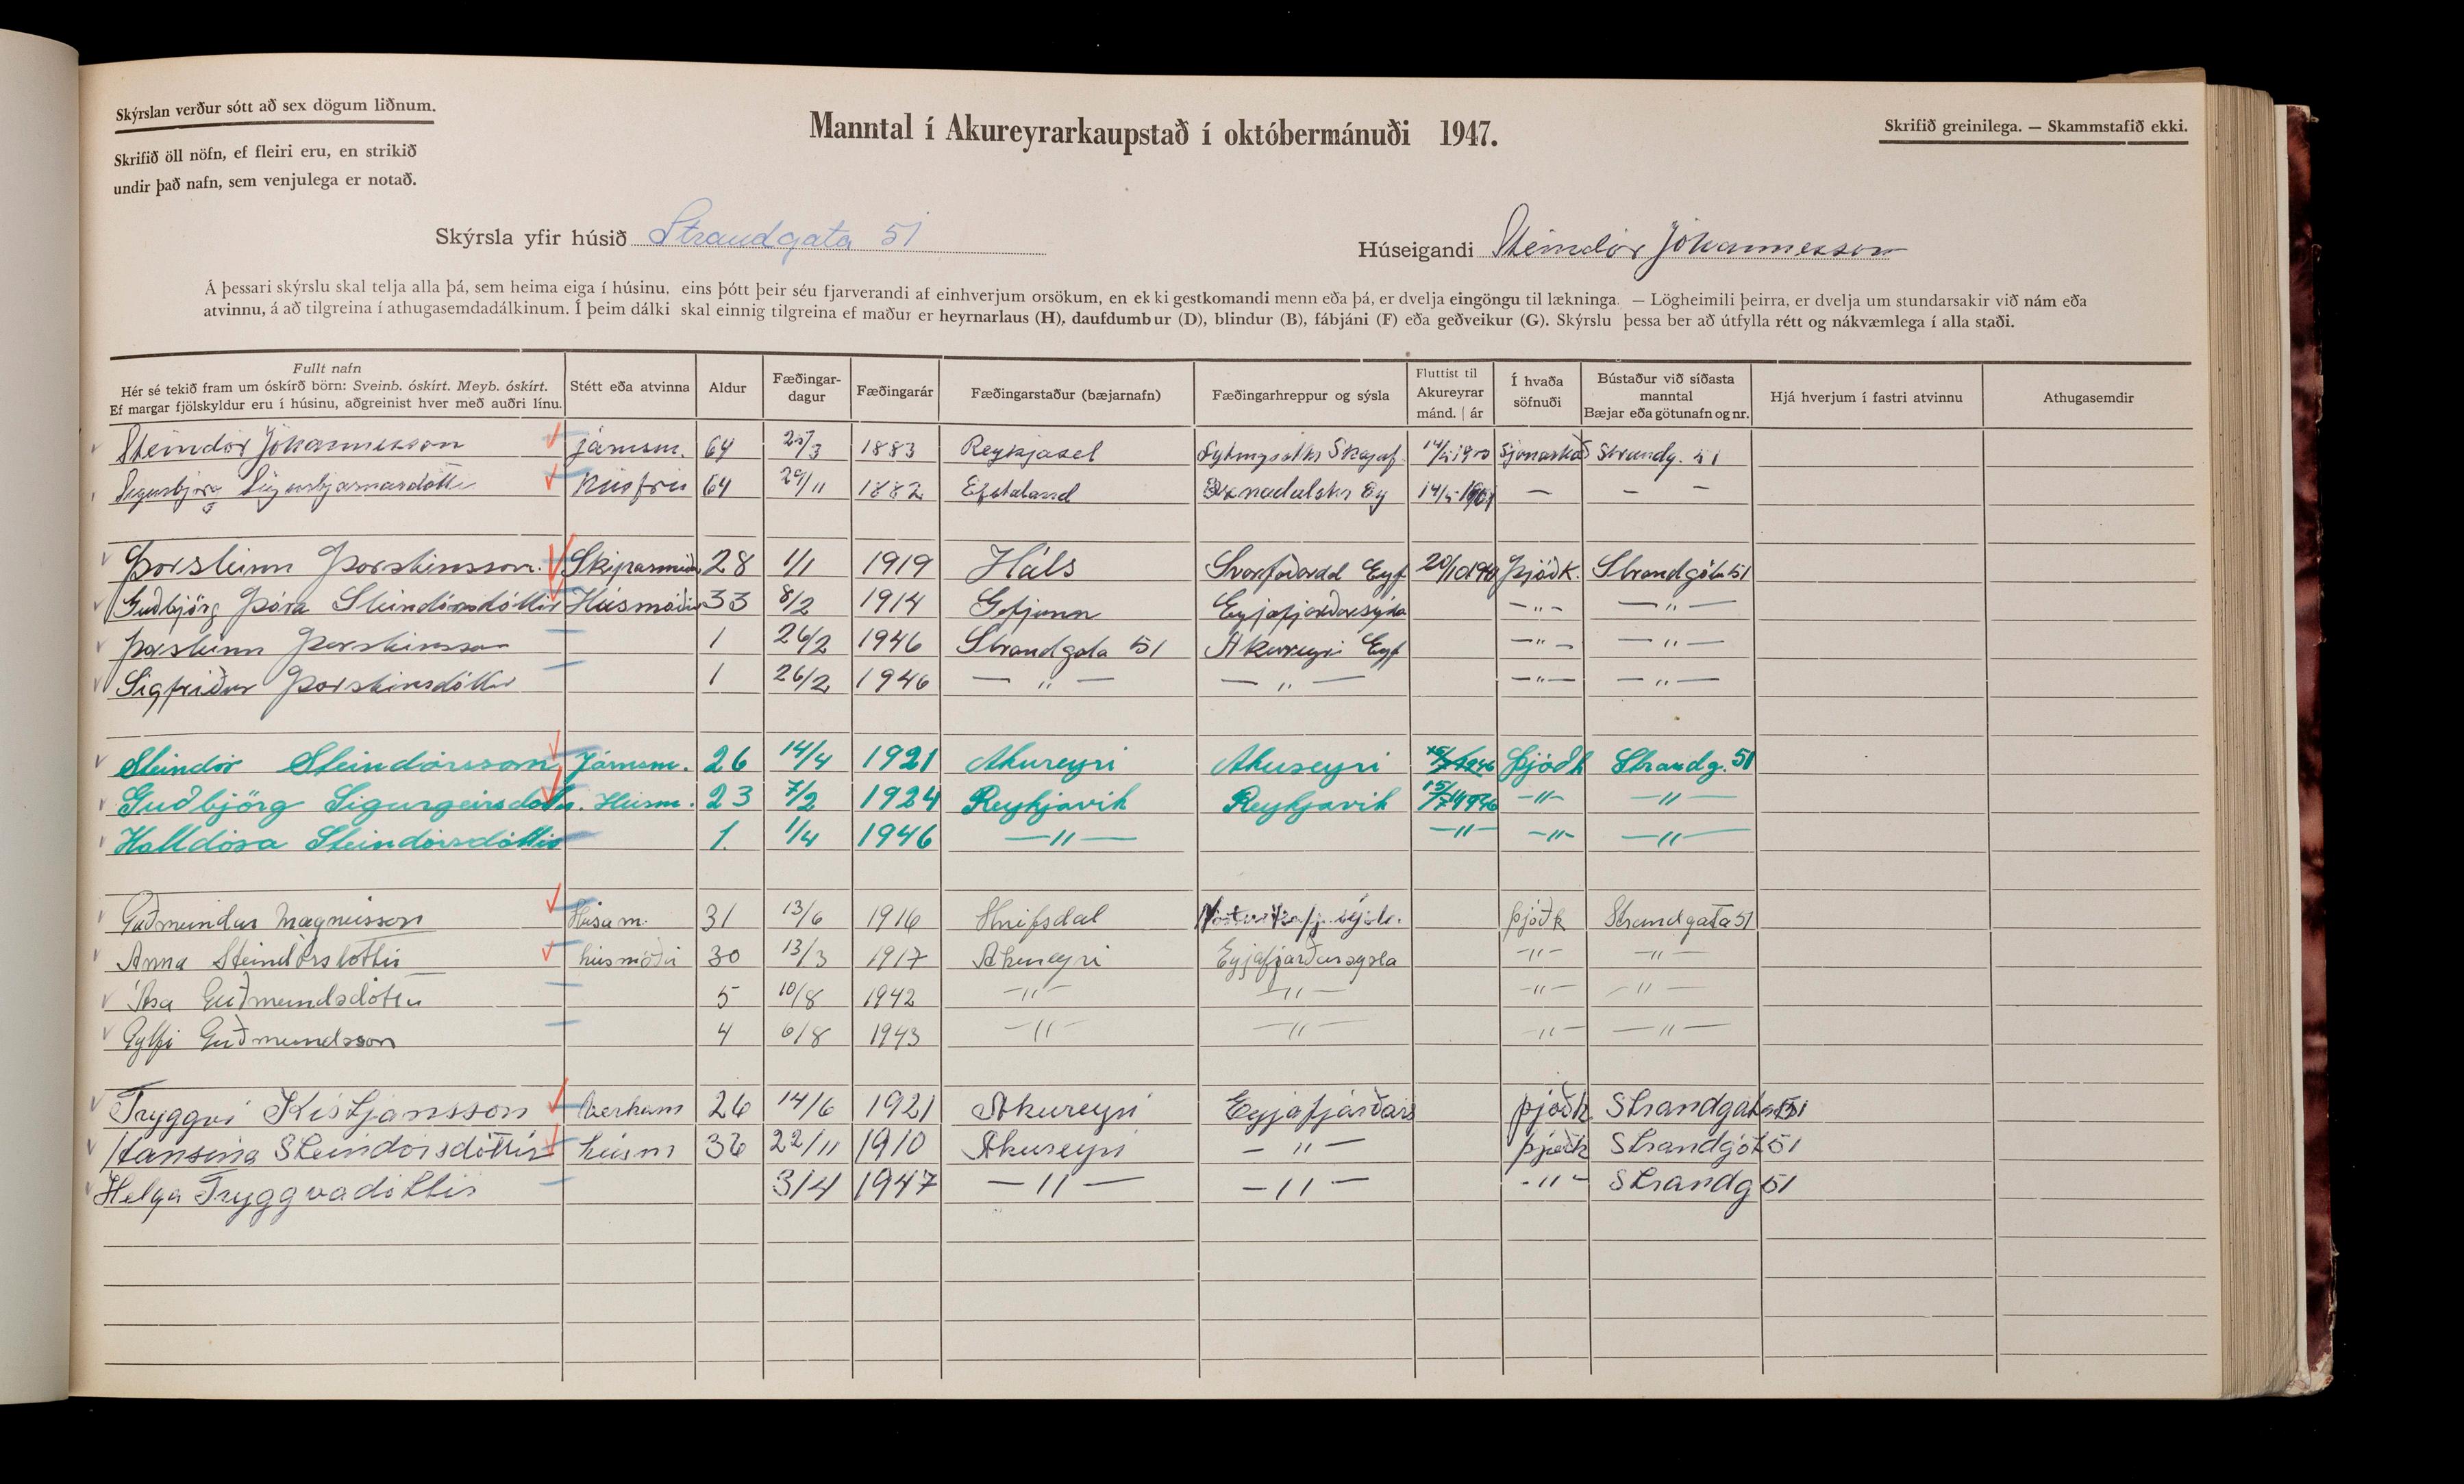 Skýrslan verður sótt að sex dögum liðnum.
Skrifið öll nöfn, ef fleiri eru, en strikið
undir það nafn, sem venjulega er notað.
Manntal í Akureyrarkaupstað í októbermánuði 1947.
Skrifið greinilega. — Skammstafið ekki.
Skýrsla yfir húsið Strandgata 51
Húseigandi Steindór Jóhannesson
Á þessari skýrslu skal telja alla þá, sem heima eiga í húsinu. eins þótt þeir séu fjarverandi af einhverjum orsökum, en ekki gestkomandi menn eða þá, er dvelja eingöngu til lækninga. — Lögheimili þeirra, er dvelja um stundarsakir við nám eða
atvinnu, á að tilgreina í athugasemdadálkinum. Í þeim dálki skal einnig tilgreina ef maður er heyrnarlaus (H), daufdumbur (D), blindur (B), fábjáni (F) eða geðveikur (G). Skýrslu þessa ber að útfylla rétt og nákvæmlega í alla staði.
Fullt nafn
Hér sé tekið fram um óskírð börn: Sveinb. óskírt. Meyb. óskírt.
Ef margar fjölskyldur eru í húsinu, aðgreinist hver með auðri línu.
Stétt eða atvinna
Aldur
Fæðingar-
dagur
Fæðingarár
Fæðingarstaður (bæjarnafn)
Fæðingarhreppur og sýsla
Fluttist til
Akureyrar
mánd. | ár
Í hvaða
söfnuði
Bústaður við síðasta
manntal
Bæjar eða götunafn og nr.
Hjá hverjum í fastri atvinnu
Athugasemdir
Steindór Jóhannesson járnsm. 64 25/3 1883 Reykjasel Skagaf. Strandg. 51
Sigurbjörg Sigurbjarnardóttir Húsfrú 64 29/11 1882 Efstaland Öxnadalshr Ey — — —
Þorsteinn Þorsteinsson. Skipasmiður 28 1/1 1919 Háls Svarfaðardal Eyf 20/10 1941 Þjóðk. Strandgöta 51
Guðbjörg Þóra Steindórsdóttir Húsmóðir 33 8/2 1914 Gefjunn Eyjafjarðarsýsla —"— —"—
Þorsteinn Þorsteinsson 1 26/2 1946 Strandgata 51 Akureyri Eyf —"— —"—
Sigfríður Þorsteinsdóttir 1 26/2 1946 —"— —"— —"— —"—
Steindór Steindórsson Járnsm. 26 14/4 1921 Akureyri Akureyri Þjóðk Strandg. 51
Guðbjörg Sigurgeirsdóttir. Húsm. 23 7/2 1924 Reykjavik Reykjavik 15/7 1946 —"— —"—
Halldóra Steindórsdóttir 1. 1/4 1946 —"— —"— —"— —"—
Guðmundur Magnússon Húsam. 31 13/6 1916 Hnífsdal þjóðk Strandgata 51
Anna Steindórsdóttir húsmóðir 30 13/3 1917 Akureyri Eyjafjarðarsýsla —"— —"—
Ása Guðmundsdóttir 5 10/8 1942 —"— —"— —"— —"—
Gylfi Guðmundsson 4 6/8 1943 —"— —"— —"— —"—
Tryggvi Kristjansson Verkam 26 14/6 1921 Akureyri Eyjafjarðars þjoðk Strandgata 51
Hansína Steindórsdóttir húsm 36 22/11 1910 Akureyri —"— þjoðk Strandgöt 51
Helga Tryggvadóttir 3/4 1947 —"— —"— —"— Strandg 51